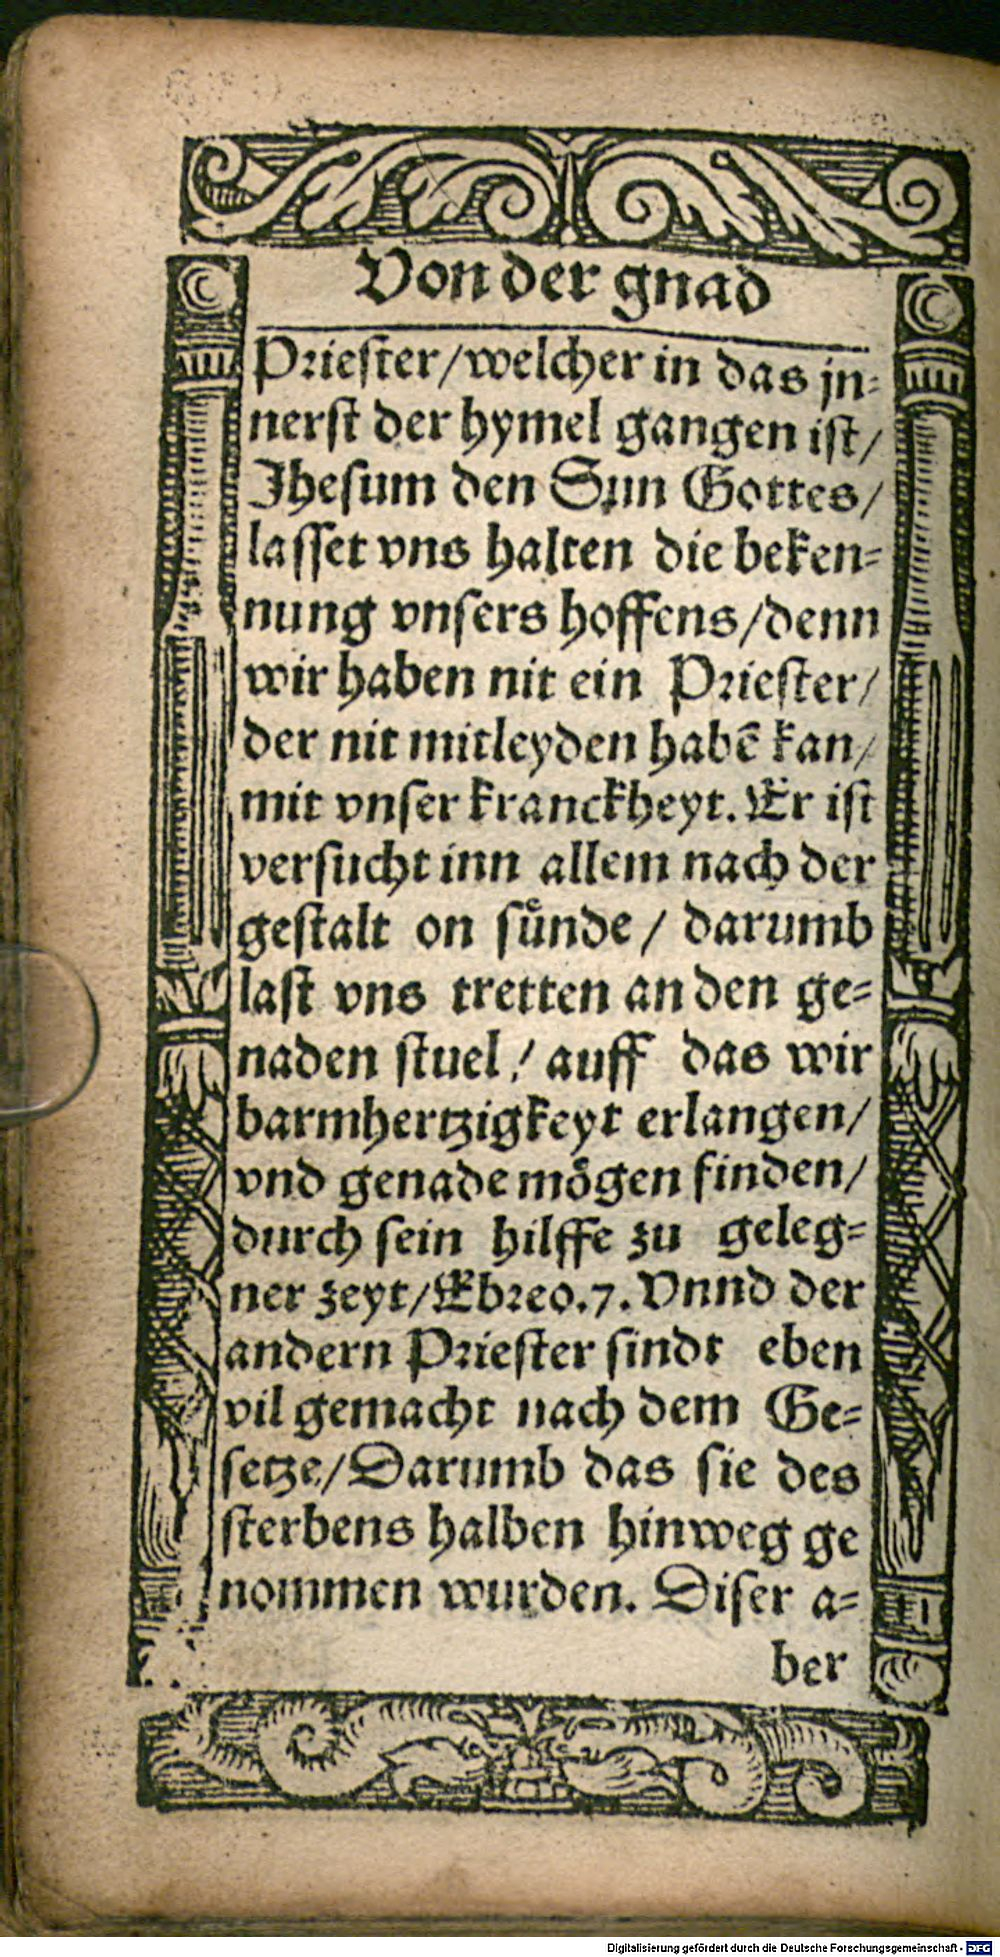 Von der gnad
Priester/welcher in das jn-
nerst der hymel gangen ist/
Jhesum den Sun Gottes/
lasset vns halten die beken-
nung vnsers hoffens/denn
wir haben nit ein Priester/
der nit mitleyden habē kan/
mit vnser kranckheyt. Er ist
versucht inn allem nach der
gestalt on suͤnde / darumb
last vns tretten an den ge-
naden stuel / auff das wir
barmhertzigkeyt erlangen/
vnd genade moͤgen finden/
durch sein hilffe zu geleg-
ner zeyt/Ebreo.7. Vnnd der
andern Priester sindt eben
vil gemacht nach dem Ge-
setze/Darumb das sie des
sterbens halben hinweg ge
nommen wurden. Diser a-
ber
Digitalisierung gefördert durch die Deutsche Forschungsgemeinschaft - DFG